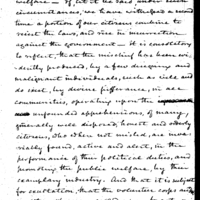 welfare — if it had said under such
circumstances, we have not
time a portion of our citizens combine to
resist the laws, and rise in insurrection
against the government — it is consolatory
to reflect, that the mischief has been evi-
dently produced, by a few designing and
malignant individuals, such as exist and
do exist, by divine sufferance, in all
communities, operating upon the
unfounded apprehensions, of many
generally well disposed, honest and orderly
citizens, who when not misled, are inva-
riably found, active and alert, in the
performance of their political duties, and
promoting the public welfare, by their
exemplary industry. And that it is subject
for exultation that the volunteer corps and